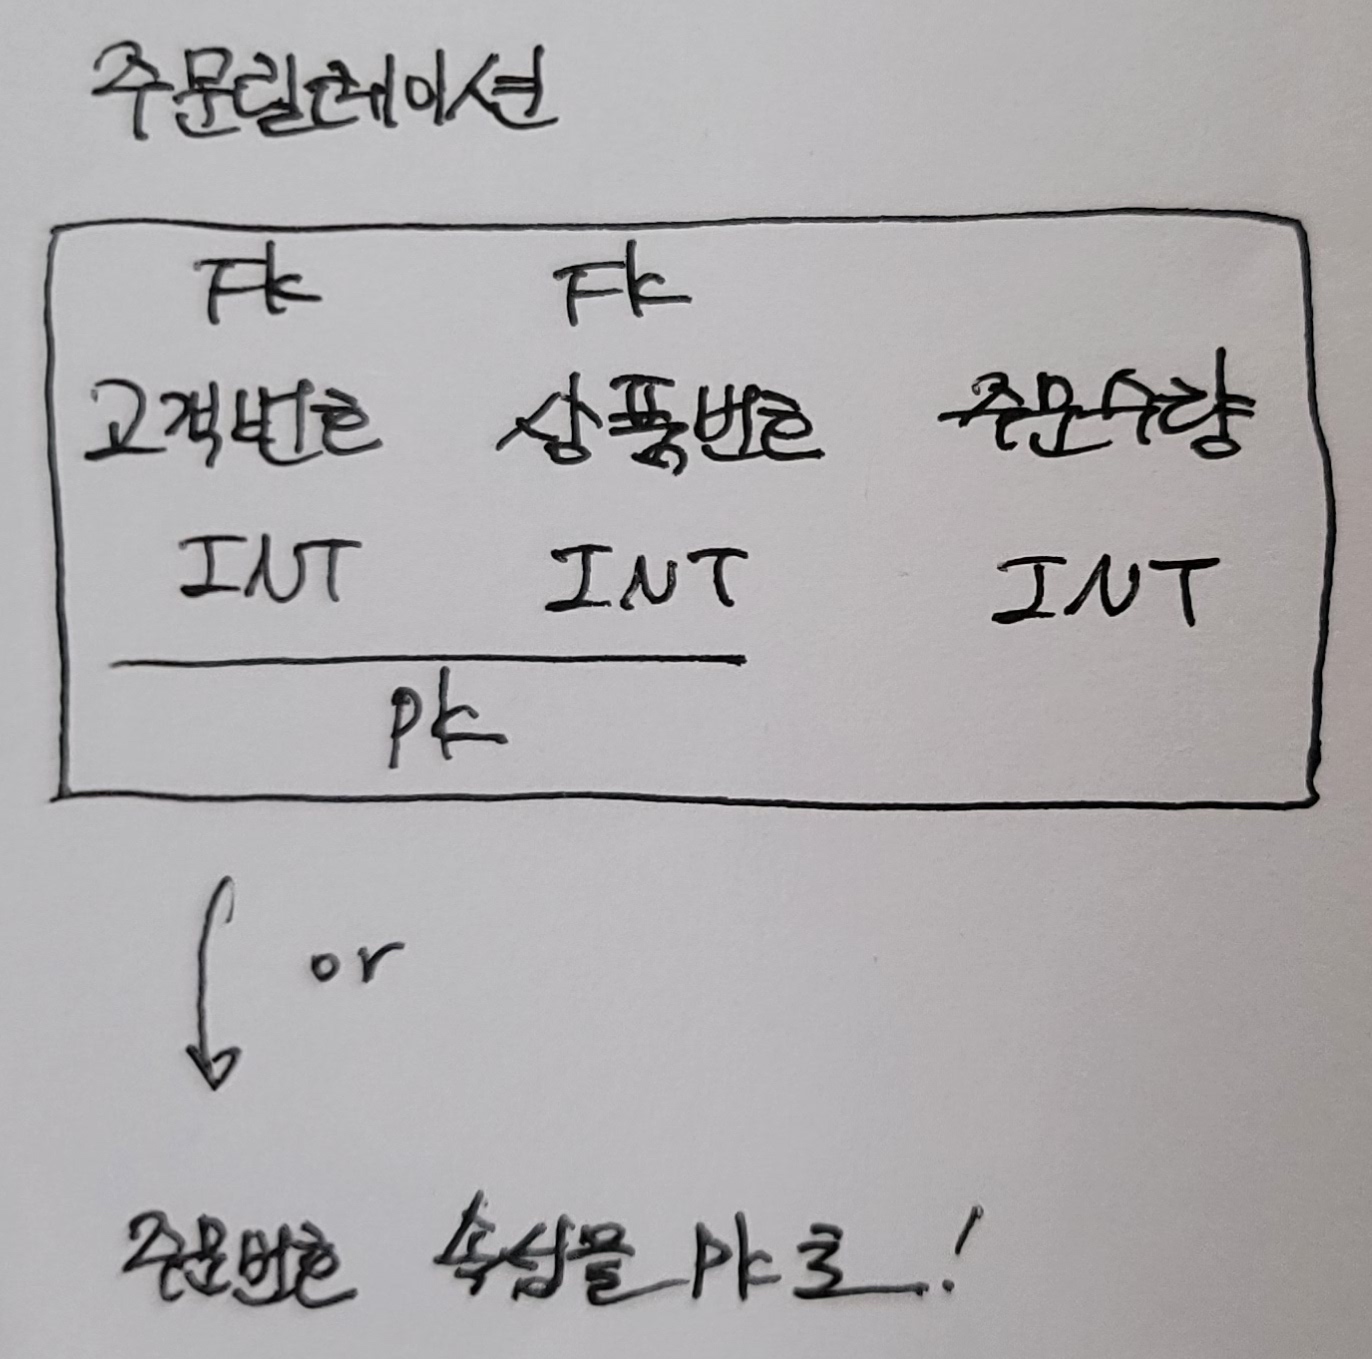 주문릴레이션
FK FK
고객번호 상품번호 주문수량
INT INT INT
PK
or
주문번호 속성을 PK로!